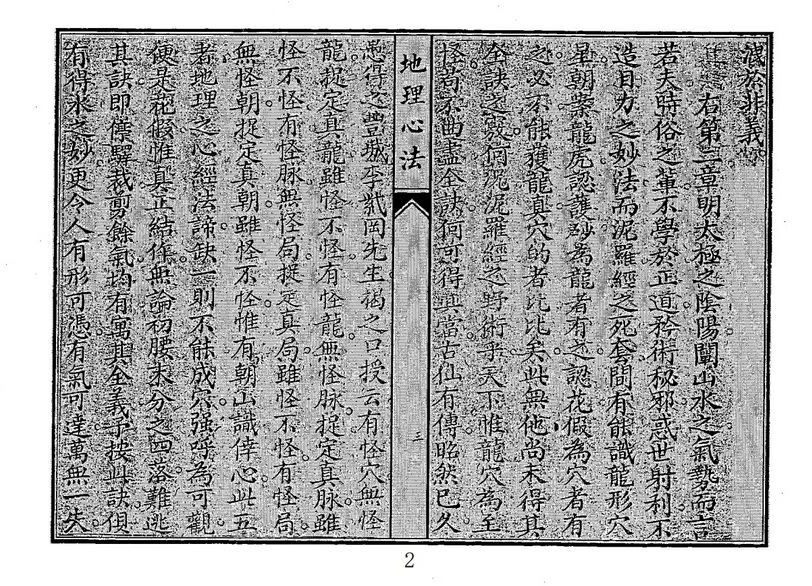 洩茶非義
右第三章明太極之陰陽闡山水之氣勢而言
若夫時俗之輩不學於正道矜術秘邪惑世射利不
造目力之妙法而泥羅經之死套間有能識龍形穴
星朝案龍虎認護砂為龍者有之認花假為穴者有
之必不能獲龍真穴的者比比矣此無他尚未得其
全訣之竅何況泥羅經之野術乎天下惟龍穴為至
怪苟不曲盡全訣何可得其當古仙有傳昭然已久
地理心法
三
愚得之豐城李戴岡先生褐之口授云有怪穴無怪
龍捉定真龍雖怪不怪有怪龍無怪脉捉定真脉雖
怪不怪有怪脉無怪局捉定真局雖怪不怪有怪局
無怪朝捉定真朝雖怪不怪惟有朝山識倖心此五
者地理之心經法諦缺一則不能成穴强呼為可觀
便是花假惟真正結作無論初腰末分之四落難逃
其訣即僕驛裁剪餘氣均有寓其全義予按此訣俱
有得水之妙更令人有形可憑有氣可達萬無一失
2